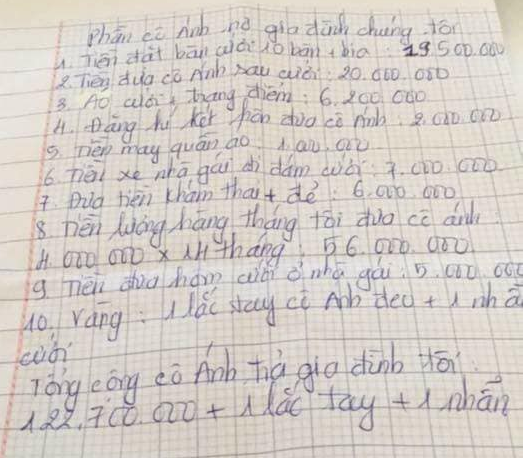 Phần cô Ánh nợ gia đình chúng tôi
1. Tiền đặt bàn cưới 10 bàn + bia : 19 500.000
2. Tiền đưa cô Ánh sau cưới : 20.000.000
3. Áo cưới + trang điểm : 6.200.000
4. Đăng kí kết hôn đưa cô Ánh : 2.000.000
5. Tiền may quần áo 1.000.000
6. Tiền xe nhà gái đi đám cưới : 7.000.000
7. Đưa tiền khám thai + đẻ : 6.000.000
8 Tiền lương hàng tháng tôi đưa cô ánh
4.000 000 x 14 tháng : 56.000.000
9. Tiền đưa hôm cưới ở nhà gái : 5.000.000
10. Vàng : 1 lắc tay cô Ánh đeo + 1 nhẫ
cưới
Tổng cộng cô Ánh trả gia đình tôi :
122.700.000 + 1 lắc tay + 1 nhẫn